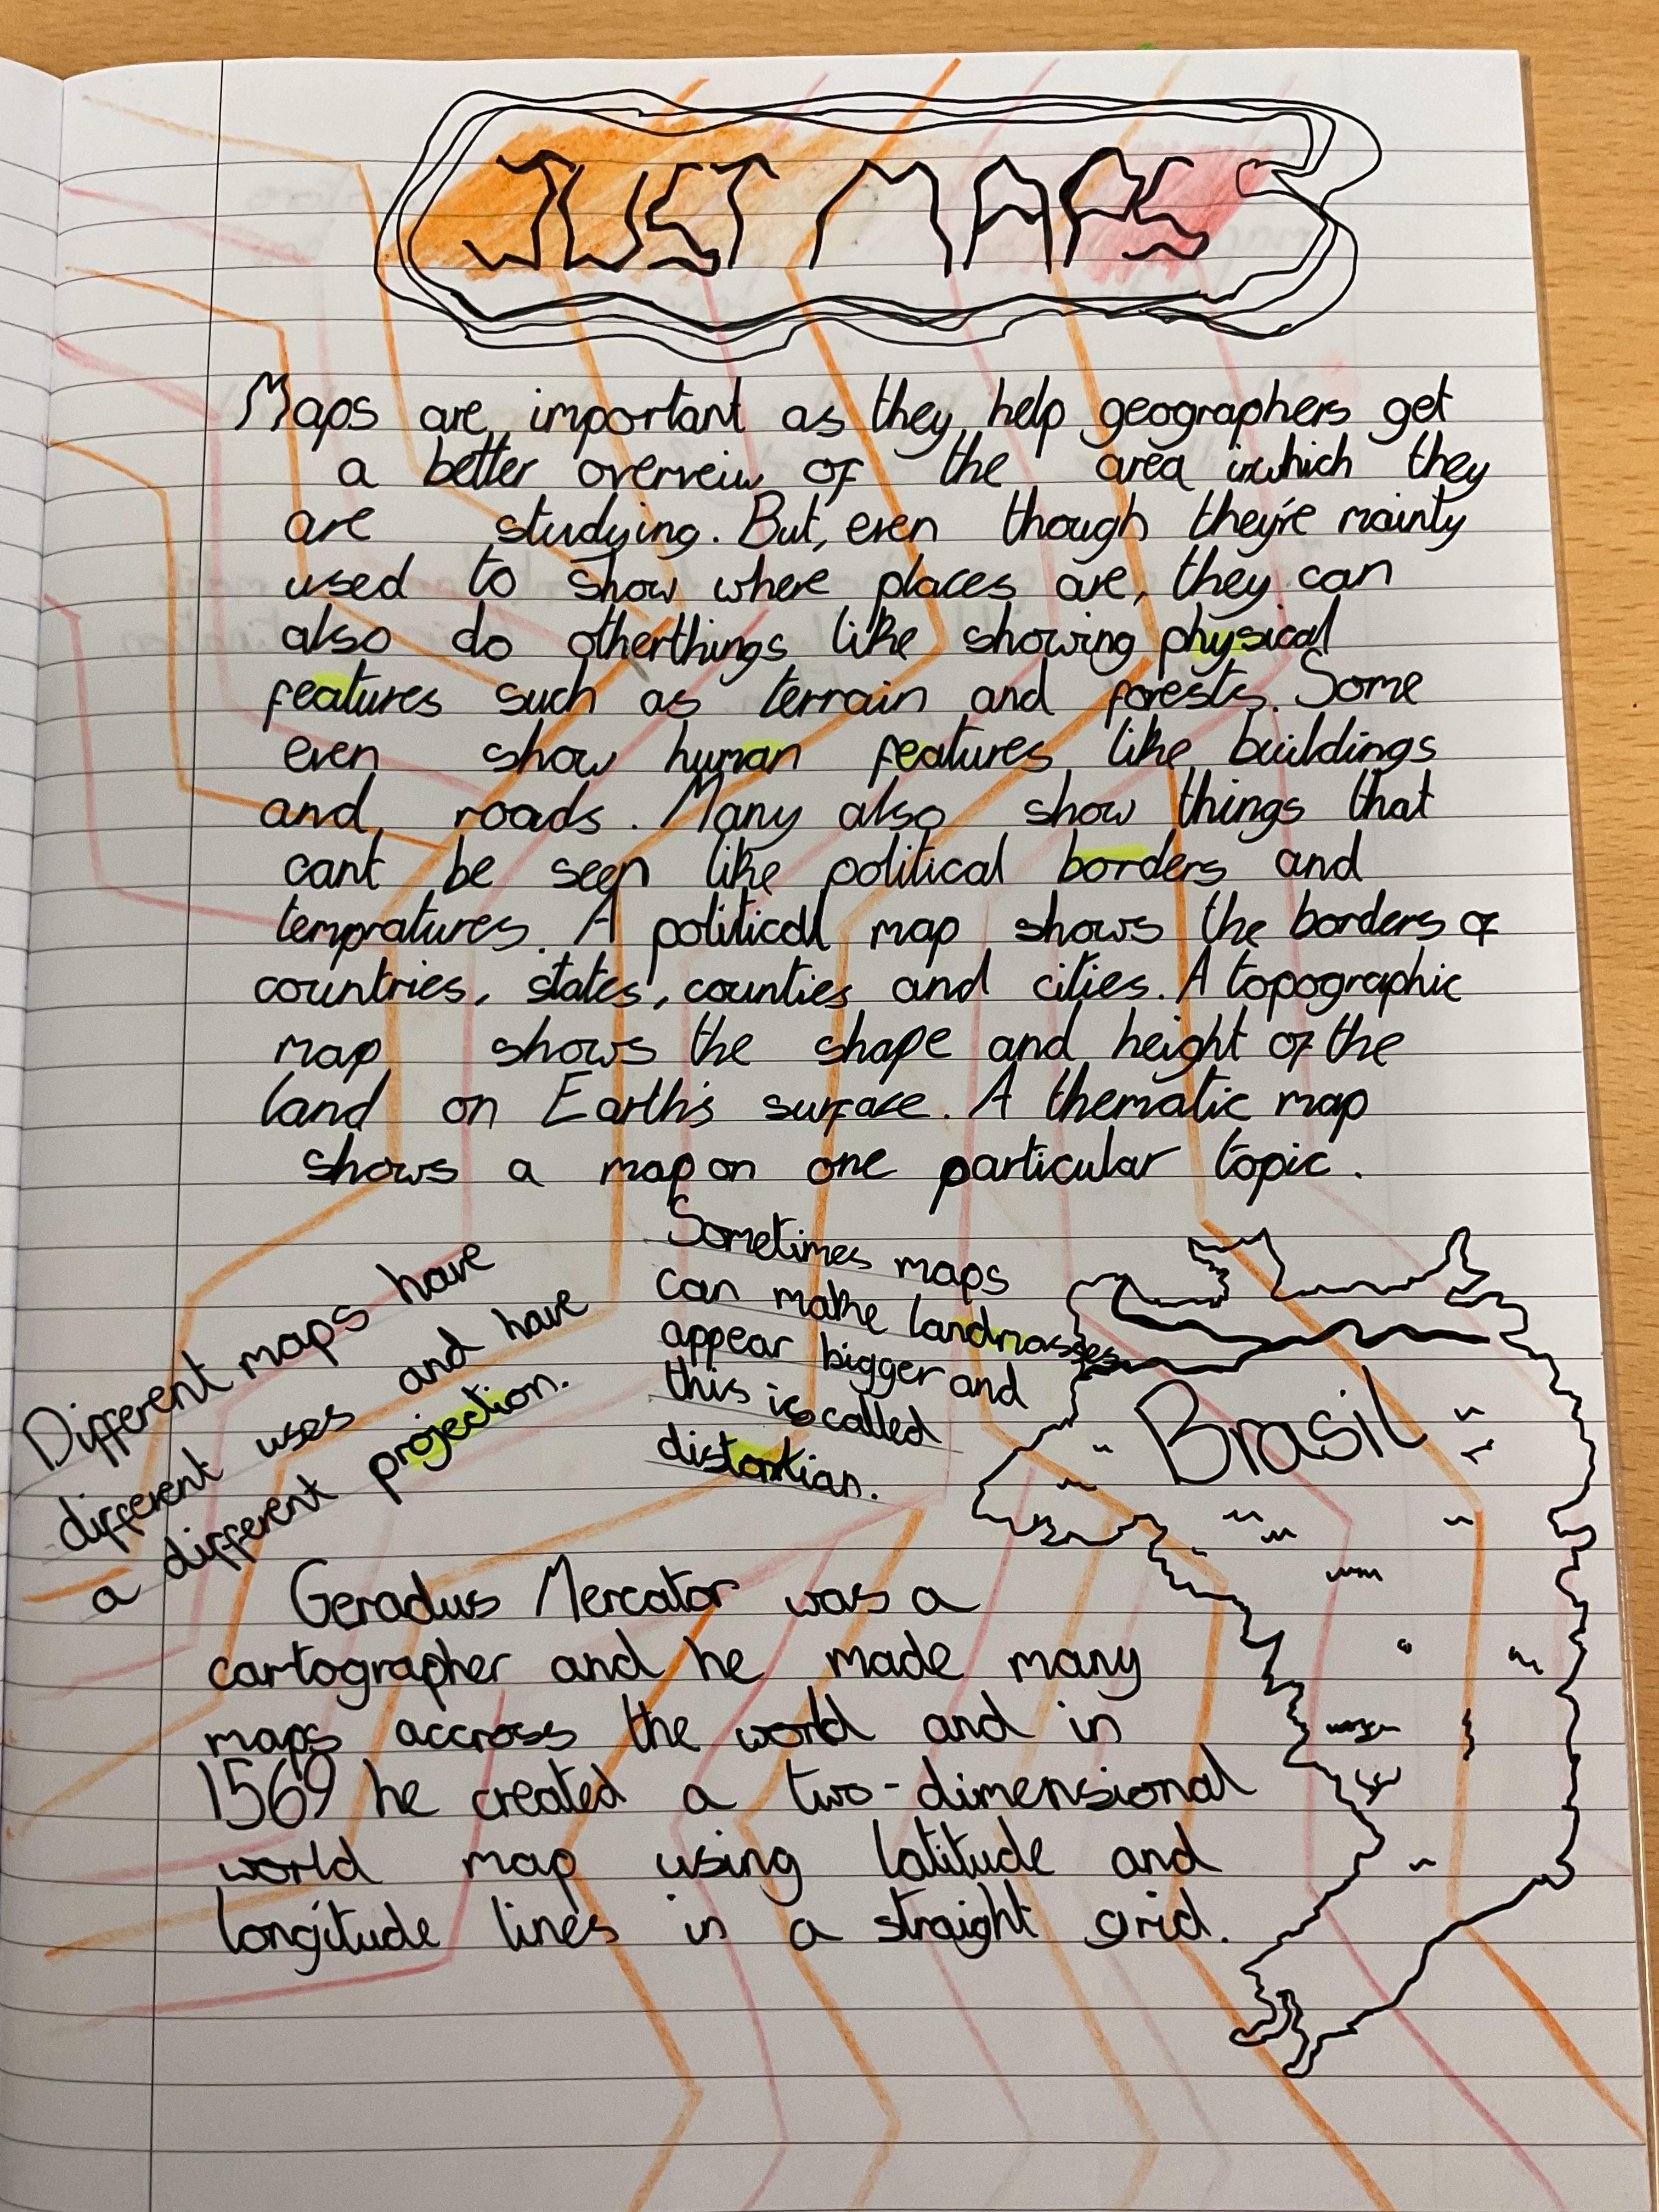 JUST MAPS
Maps are important as they help geographers get
a better overveiw of the area inwhich they
are studying. But, even though they're mainly
used to show where places are, they can
also do otherthings like showing physical
features such as terrain and forests. Some
even show human features like buildings
and roads. Many also show things that
cant be seen like political borders and
tempratures. A political map shows the borders of
countries, states, counties and cities. A topographic
map shows the shape and height of the
land on Earth's surface. A thematic map
shows a map on one particular topic.
Different maps have
different uses and have
a different projection.
Sometimes maps
can make landmasses
appear bigger and
this is called
distortian.
Brasil
Geradus Mercator was a
cartographer and he made many
maps accross the world and in
1569 he created a two-dimensional
world map using latitude and
longitude lines in a straight grid.